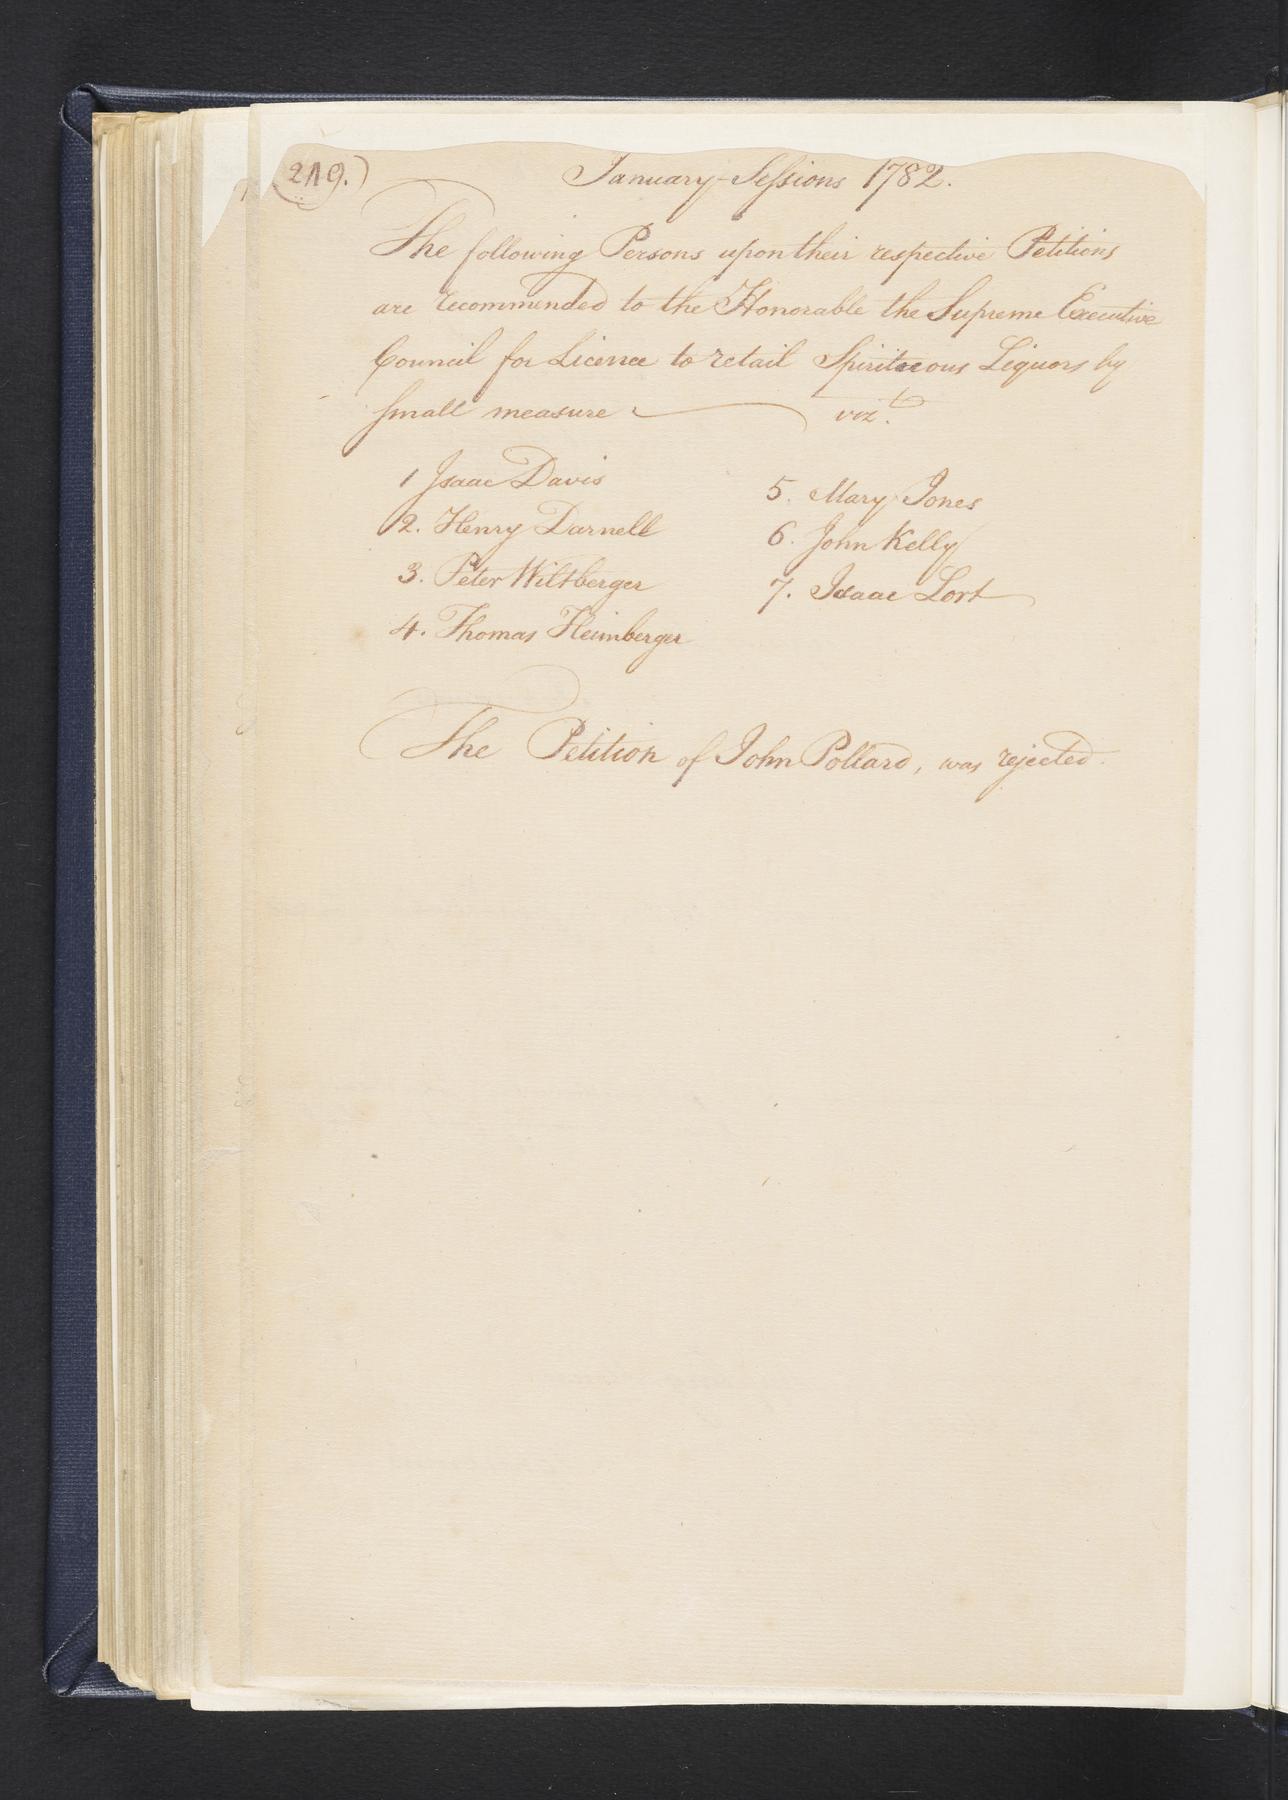 219.)
January-Sessions 1782.
The following Persons upon their respective Petitions
are recommended to the Honorable the Supreme Executive
Council for Licence to retail Spirituous Liquors by
small measure vizt.
1 Isaac Davis
2. Henry Darnell
3. Peter Wiltberger
4. Thomas Heimberger
5. Mary Jones
6. John Kelly
7. Isaac Lort
The Petition of John Pollard, was rejected.